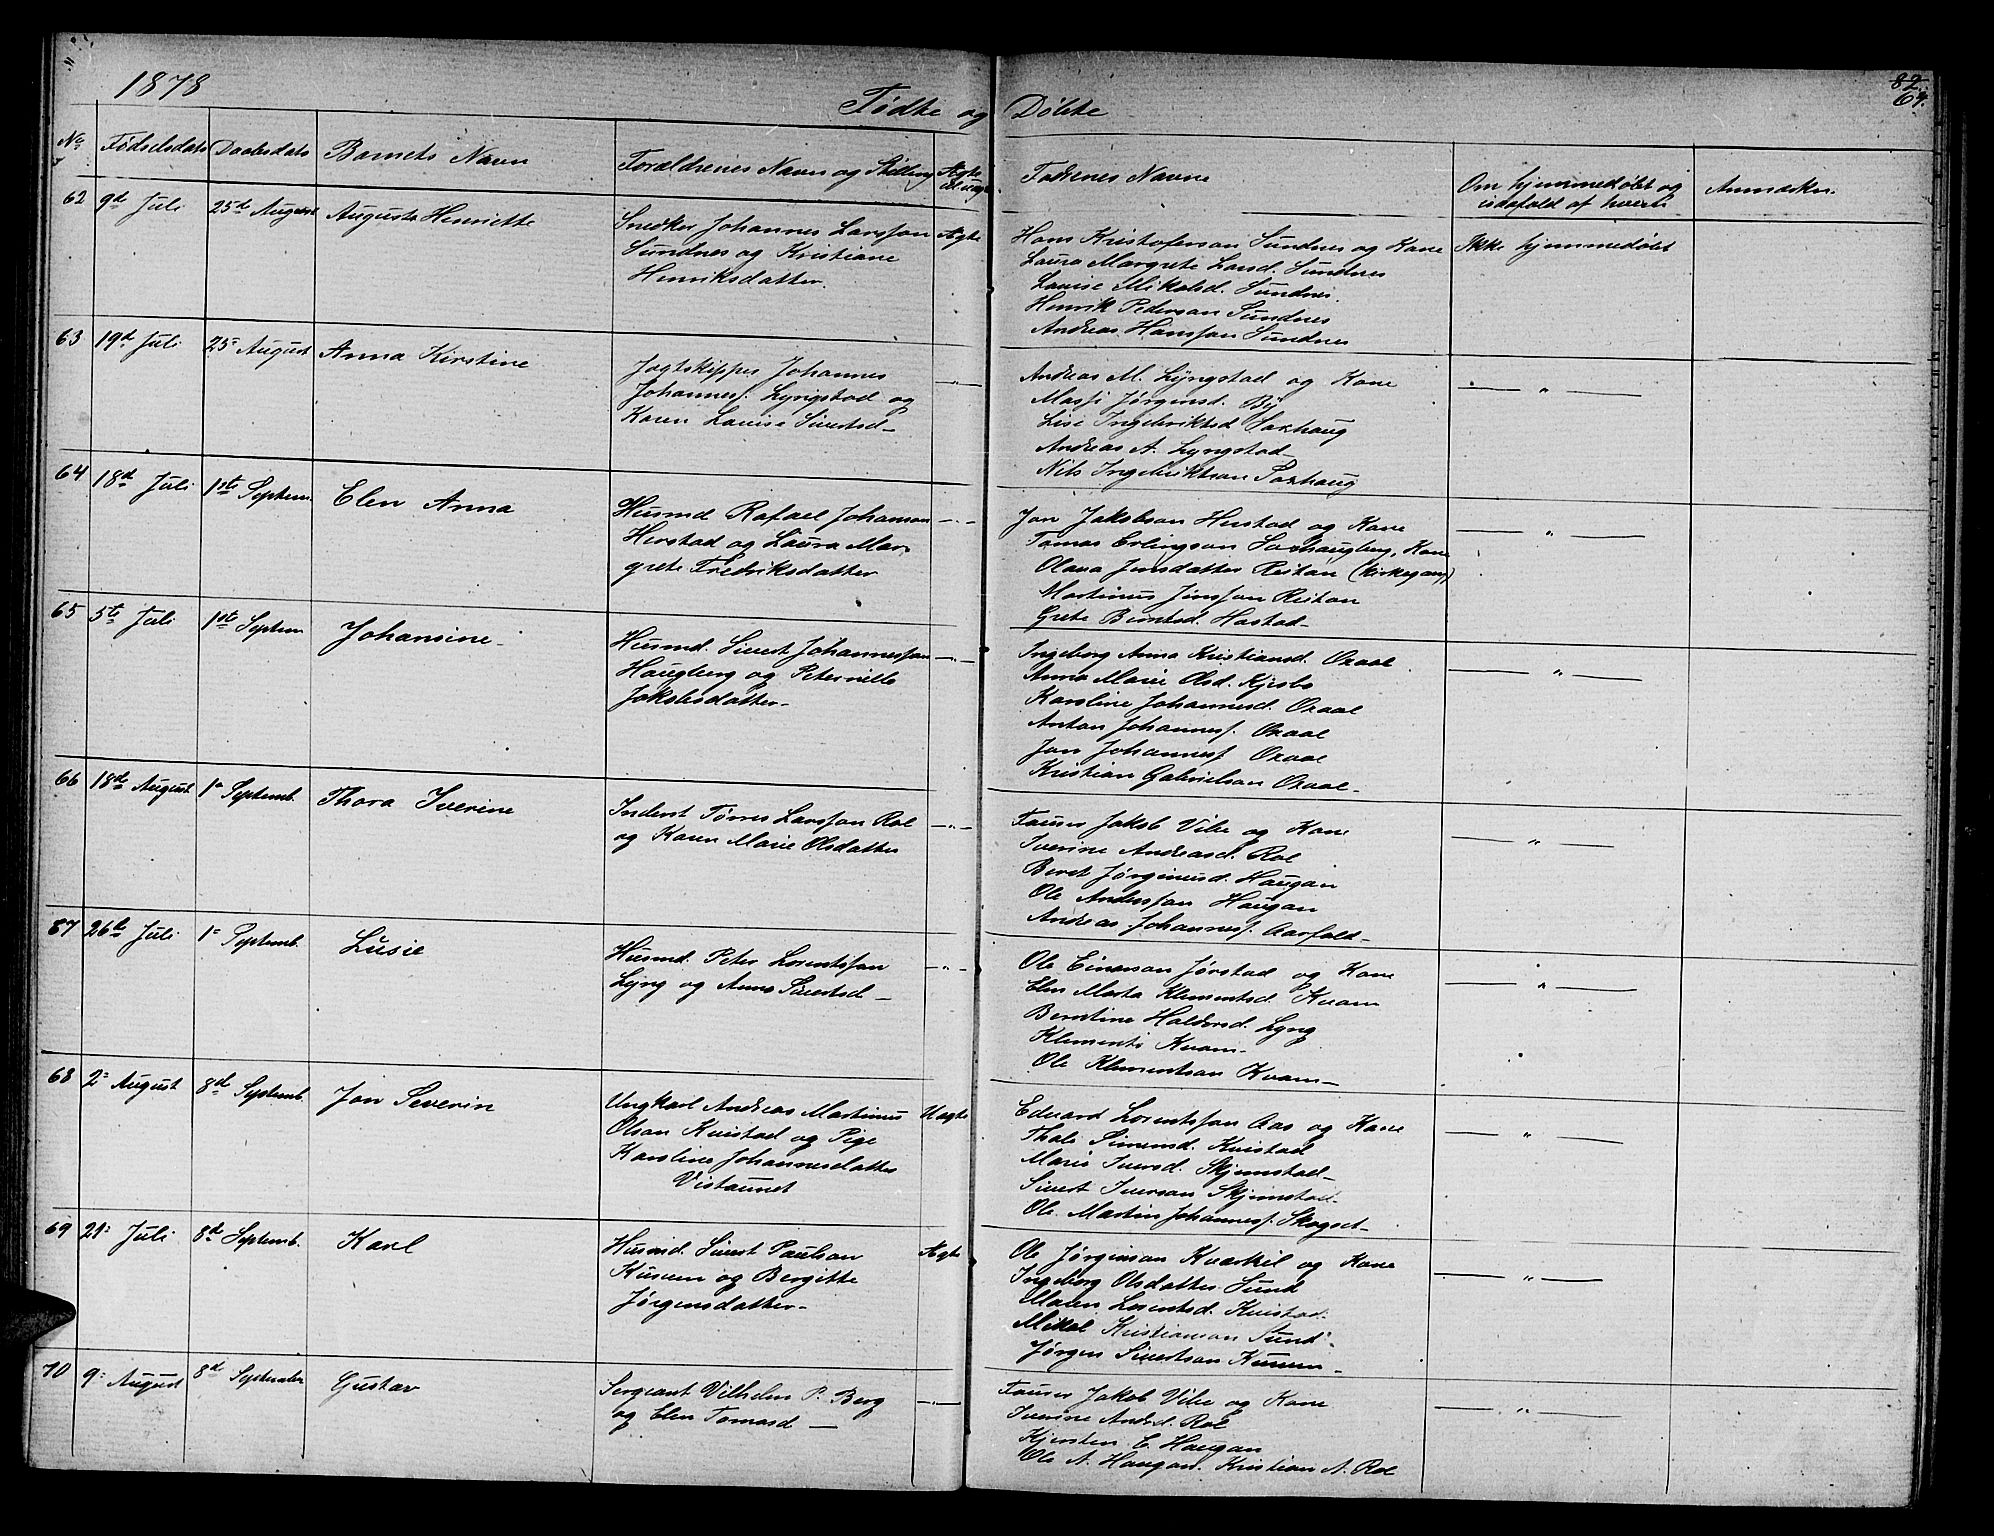 1878
Fødte og Døbte
82
64.
No Fødselsdato Daabsdato Barnets Navn Forældrenes Navn og Stilling Ægte el. uægte Faddernes Navne Om hjemmedøbt og isåfald af hvem Anmærkn.
62 9d Juli 25d August Auguste Henriette
Snedker Johannes Larsson
Sundnes og Kristiane
Henriksdatter.
Ægte
Hans Kristoferson Sundnes og Kone
Laura Margrete Larsd. Sundnes
Lauise Mikalsd. Sundnes.
Henrik Pederson Sundnes
Andreas Hansson Sundnes
Ikke hjemmedøbt
63 19d Juli 25= August Anna Kirstine
Jagtskipper Johannes
Johannesf. Lyngstad og
Karen Lauise Sivertsd-
-"-
Andreas M. Lyngstad og Kone
Massi Jørgensd. By
Lise Ingebriktsd Saxhaug
Andreas A. Lyngstad-
Nils Ingebriktson Saxhaug
— " —
64 18d Juli 1ste Septem. Elen Anna
Husmd Rafael Johanson
Herstad og Laura Mar-
grete Fredriksdatter
-"-
Jon Jakobson Herstad og Kone
Tomas Erlingson Saxhaugberg, Kone
Olava Jensdatter Reitan (Kirkegang)
Martinus Jensson Reitan
Grete Berntsd. Hastad-
— " —
65 5te Juli 1ste Septem Johansine-
Husmd. Sivert Johannesson
Haugberg og Peternille
Jakobsdatter-
-"-
Ingeborg Anna Kristiansd. Oxaal
Anna Marie Olsd. Kjesbo
Karoline Johannesd. Oxaal
Anton Johannesf. Oxaal
Jon Johannesf Oxaal
Kristian Gabrielson Oxaal-
— " —
66 18de August 1= Septemb. Thora Iverine
Inderst Tørres Larsson Rol
og Karen Marie Olsdatter
-"-
Fourer Jakob Vibe og Kone
Iverine Andreasd. Rol
Beret Jørginusd. Haugan
Ole Andersson Haugan
Andreas Johannesf. Aarfald-
— " —
87 26de Juli 1= Septemb. Lusie
Husmd. Peter Lorentsson
Lyng og Anna Sivertsd-
-"-
Ole Einarson Jørstad og Kone
Elen Marta Klementsd. Kvam
Berntine Haldorsd. Lyng
Klement Kvam-
Ole Klementson Kvam-
— " —
68 2= August 8d Septemb. Jon Severin
Ungkarl Andreas Martinus
Olson Kvistad og Pige
Karoline Johannesdatter
Vistaunet
Uægte
Edvard Lorentsson Aas og Kone
Thale Simonsd. Kvistad
Marie Iversd. Skjemstad-
Sivert Iverson Skjemstad-
Ole Martin Johannesf. Skogset-
— " —
69 21= Juli 8d Septemb. Karl
Husmd. Sivert Paulson
Kusem og Bergitte
Jørgensdatter-
Ægte
Ole Jørgenson Kvarkil og Kone
Ingeborg Olsdatter Sund
Maren Lorentsd. Kvistad.
Mikal Kristianson Sund
Jørgen Sivertson Kusem-
— " —
70 9= August 8d September Gustav
Sergeant Vilhelm P. Berg
og Elen Tomasd —
-"-
Fourer Jakob Vibe og Kone
Iverine Andsd. Rol
Kjersten E. Haugan
Ole A. Haugan. Kristian A. Rol
— " —